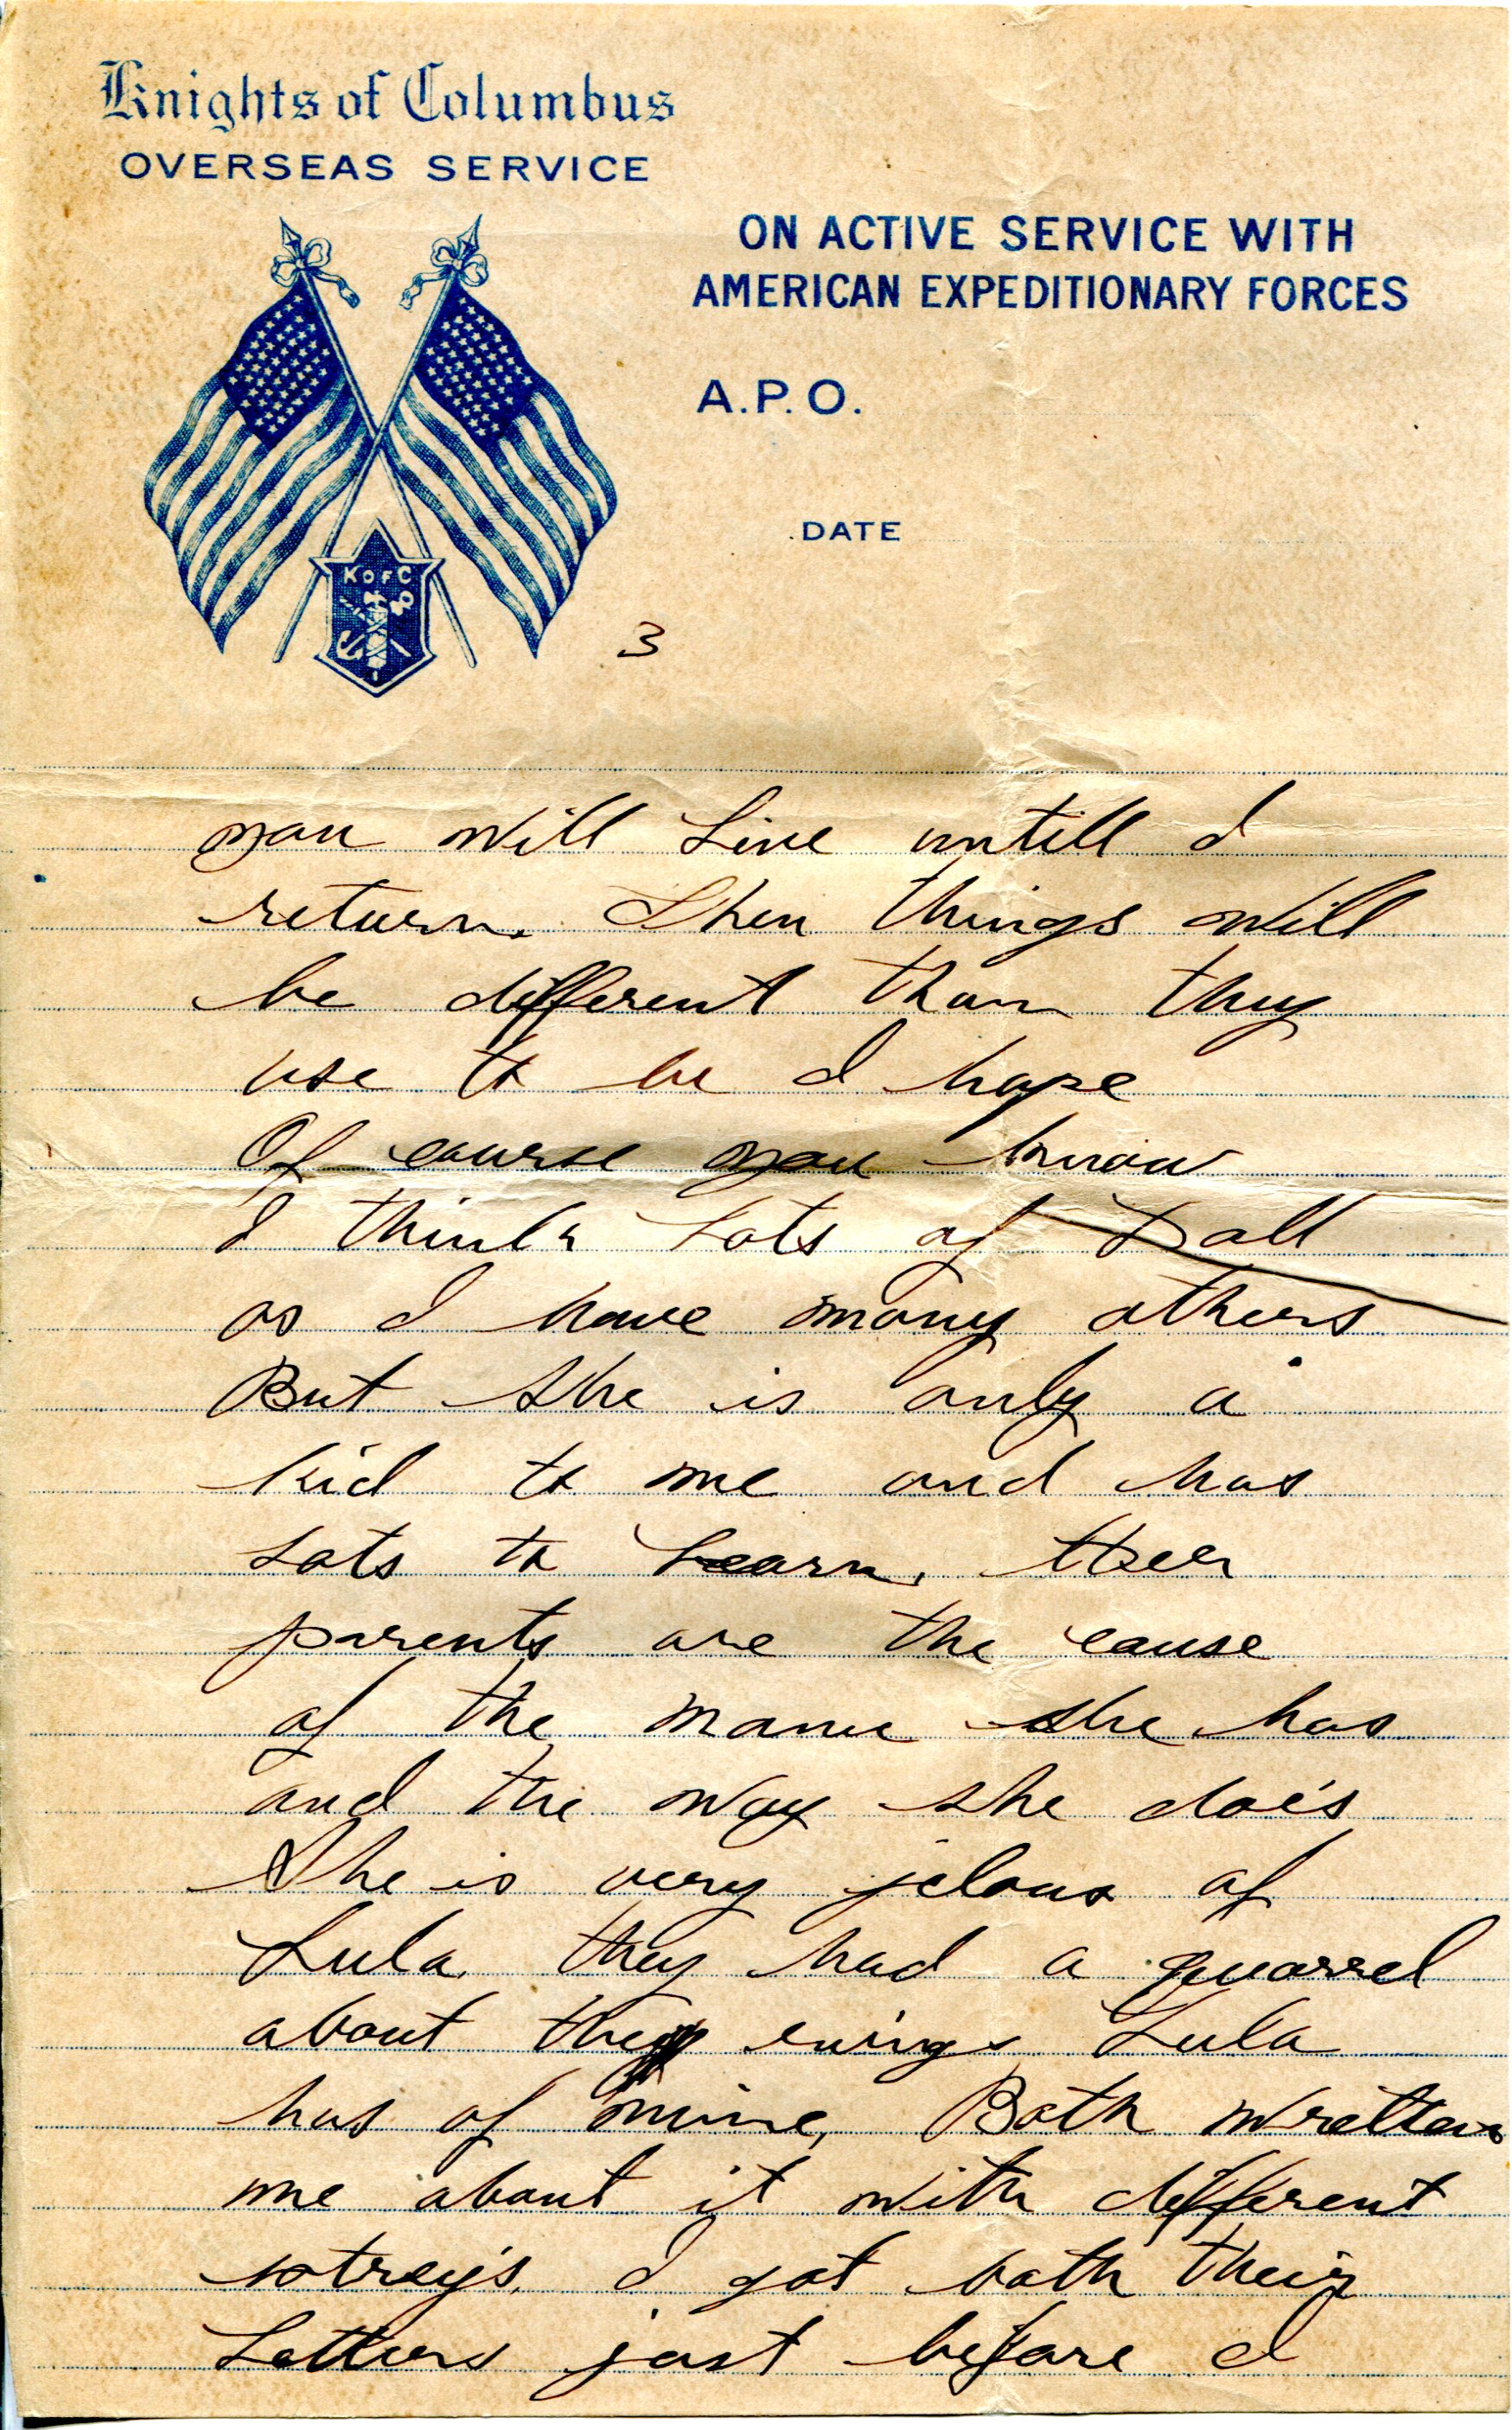 Knights of Columbus
OVERSEAS SERVICE
ON ACTIVE SERVICE WITH
AMERICAN EXPEDITIONARY FORCES
A.P.O.
DATE
K OF C
3
you will Live untill I
return. Then things will
be different than they
use to be I hope
Of course you know
I think Lots of Doll
as I have many others
But she is only a
kid to me and has
Lots to Learn,
parents are the cause
of the she has
and the way she does
She is very jelous of
Lula. they had a quarrel
about the rings Lula
has of mine, Both written
me about it with different
storeys. I got both their
Letters just before I